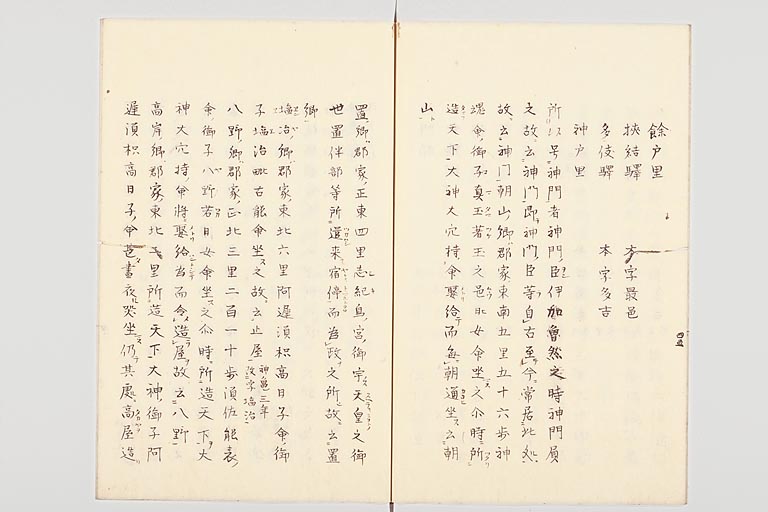 餘戸里
狹結驛 本字最邑
多伎驛 本字多吉
神戸里
所以号神門者神門臣伊加曽然之時神門負
之故云神門即神門臣等自古至今常居此処
故云神門朝山郷郡家東南五里五十六歩神
魂命御子真玉著玉之邑日女命坐之尒時所
造天下大神大穴持命娶給而毎朝通坐云朝
山
置郷郡家正東四里志紀島宮御宇天皇之御
世置伴部等所還来宿停而為政之所故云置
郷
塩冶郷郡家東北六里阿遅須枳高日子命御
子塩冶毗古能命坐之故云止屋 神亀三年改字塩治
八野郷郡家正北三里二百一十歩須佐能袁
命御子八野若日女命坐之尒時所造天下大
神大穴持命将娶給為而令造屋故云八野
高岸郷郡家東北二里所造天下大神御子阿
遅須枳高日子命甚晝夜哭坐仍其處高屋造